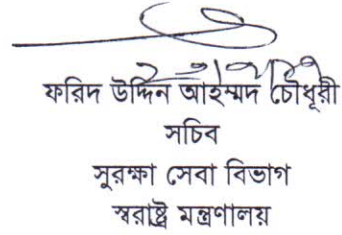 ফরিদ উদ্দিন আহম্মদ চৌধূরী
সচিব
সুরক্ষা সেবা বিভাগ
স্বরাষ্ট্র মন্ত্রণালয়